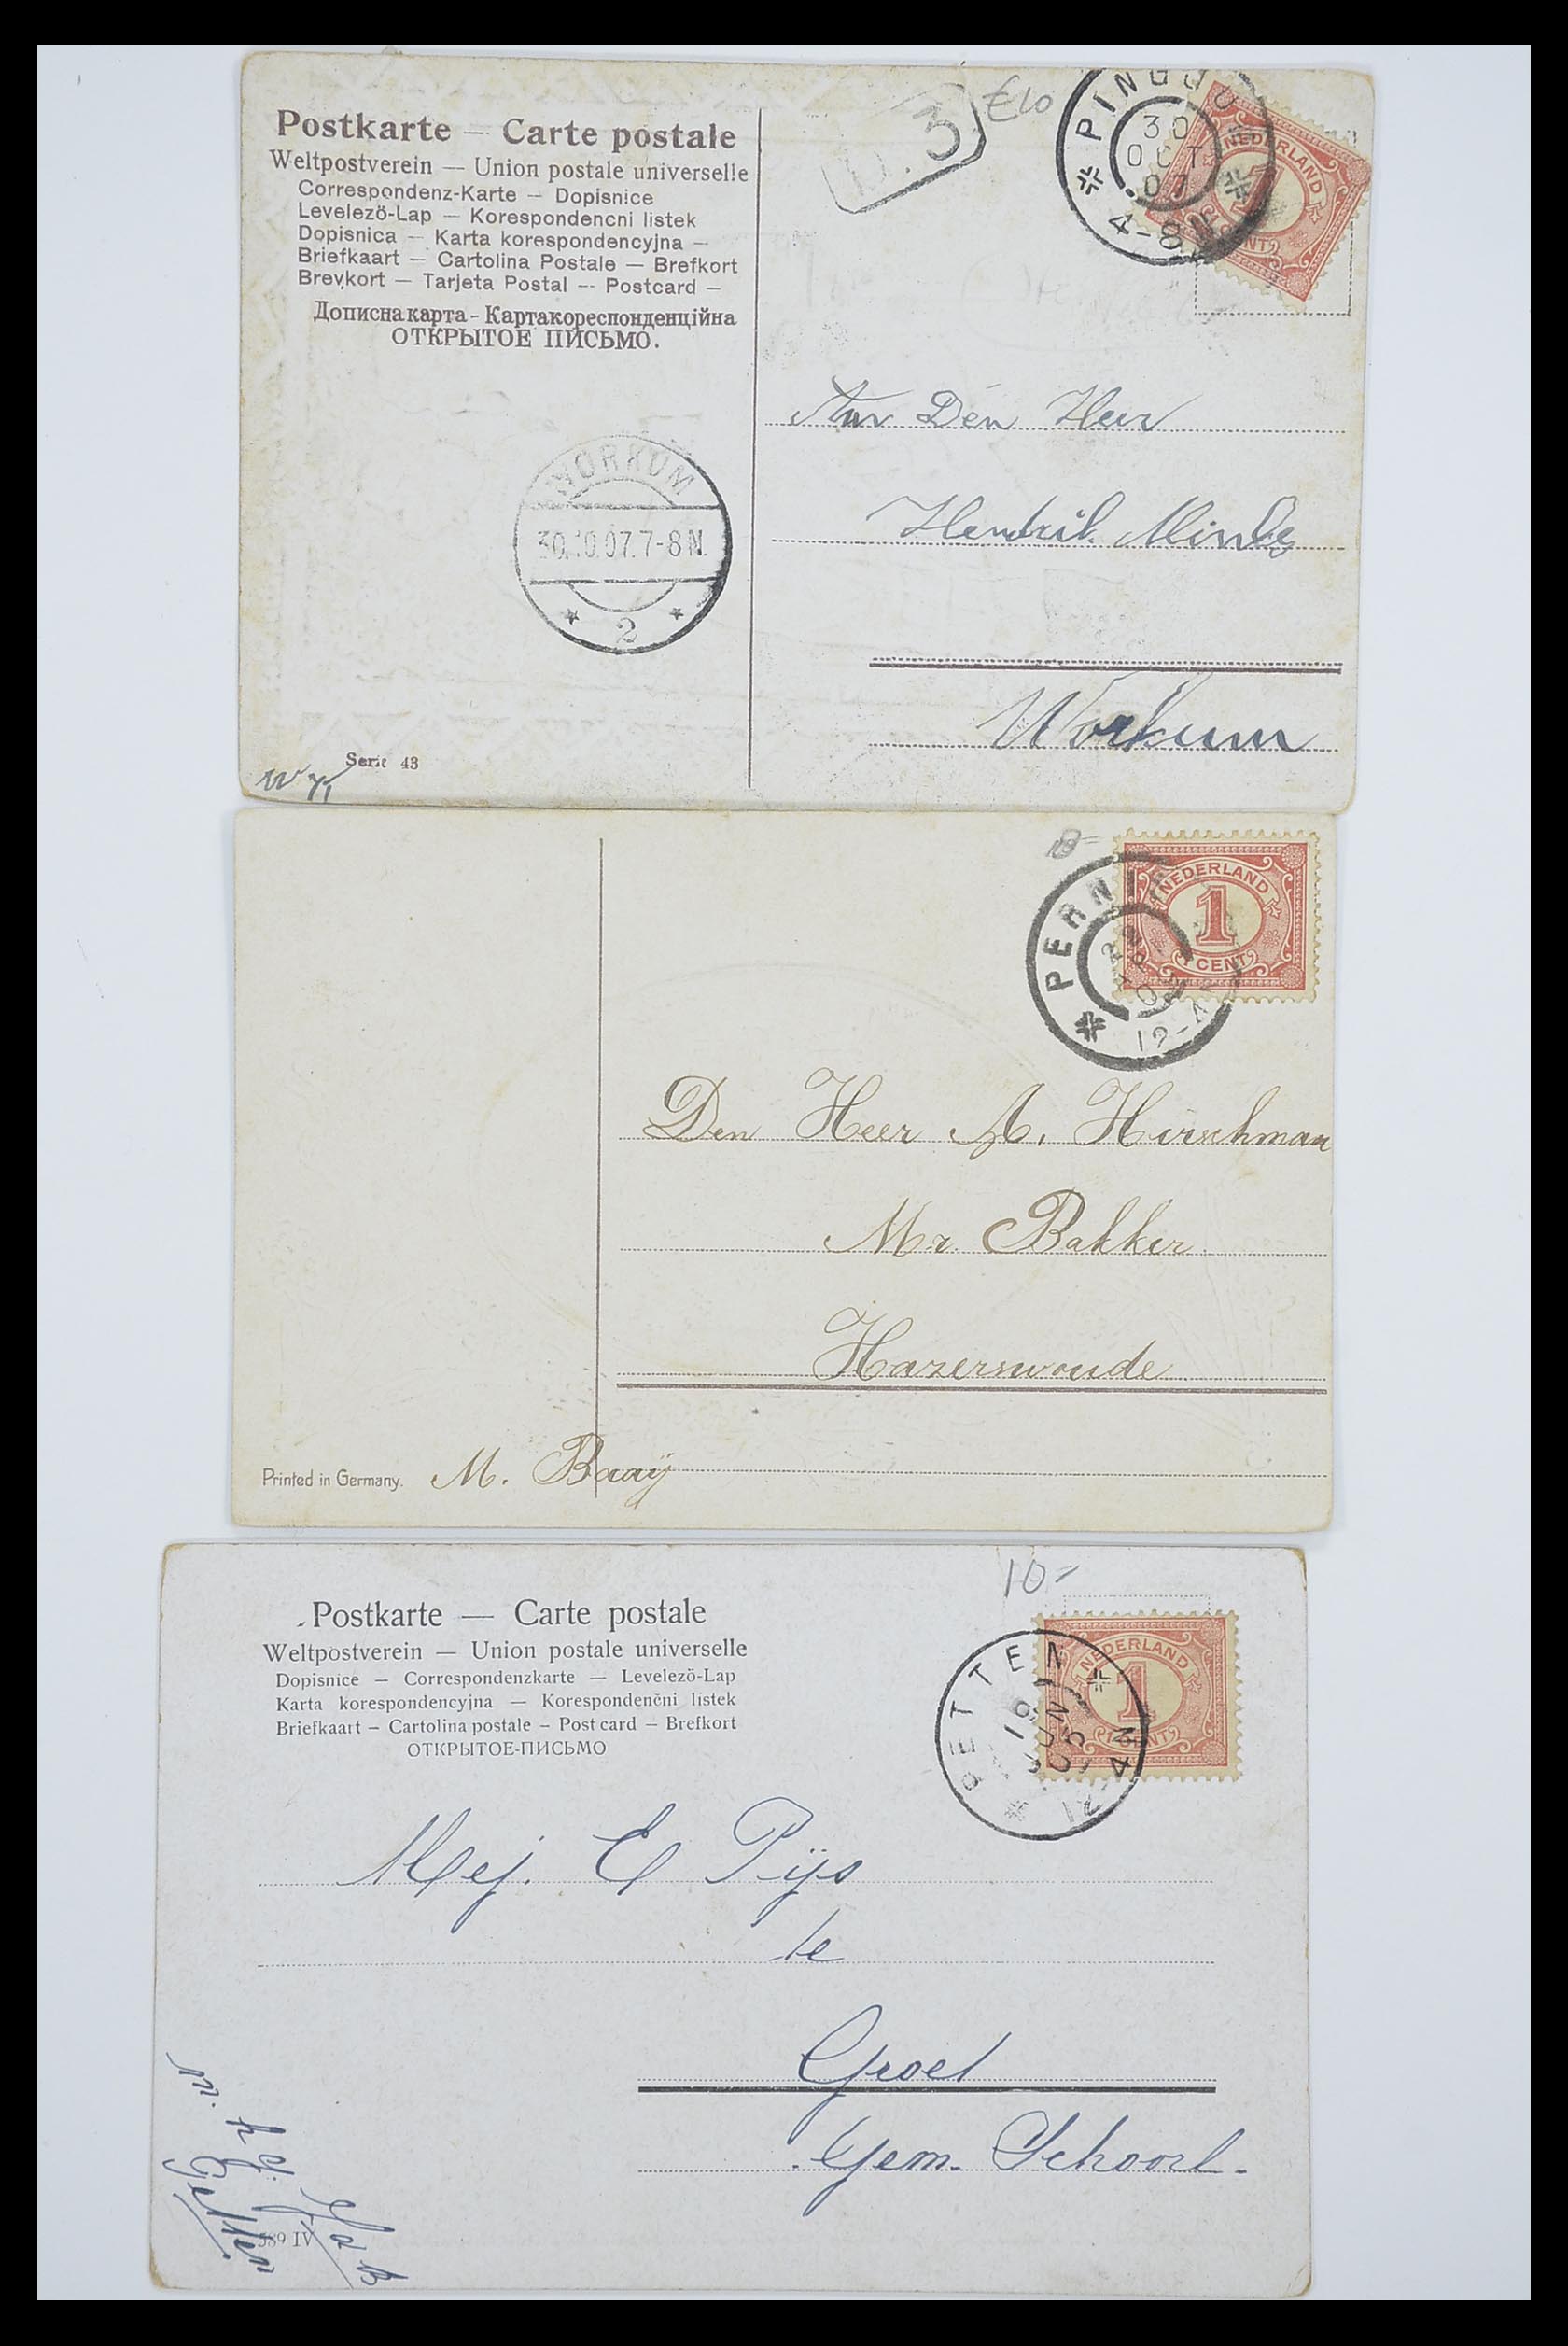 Postkarte — Carte postale
Weltpostverein — Union postale universelle
Correspondenz-Karte — Dopisnice
Levelező-Lap — Korespondencni listek
Dopisnica — Karta korespondencyjna —
Briefkaart — Cartolina Postale — Brefkort
Brevkort — Tarjeta Postal -- Postcard —
Дописна карта - Карта кореспонденційна
ОТКРЫТОЕ ПИСЬМО.
3
€10
PINGJU
30
OCT
07
4-8N
NEDERLAND
CENT
WORKUM
30.10.07.7-8N.
2
Den Heer
Hendrik
Workum
Serie 43
PERNIS
12-4
NEDERLAND
1
1 CENT
Den Heer A. Hirschman
Mr. Bakker
Hazerswoude
Printed in Germany. M. Baaÿ
10=
Postkarte — Carte postale
Weltpostverein — Union postale universelle
Dopisnice — Correspondenzkarte — Levelező-Lap
Karta korespondencyjna — Korespondenčni listek
Briefkaart — Cartolina postale — Post card — Brefkort
ОТКРЫТОЕ-ПИСЬМО
PETTEN
JUN
05
12-4N
NEDERLAND
1
CENT
Mej. E Pijs
te
Groet
Gem. Schoorl.
Petten
589 IV